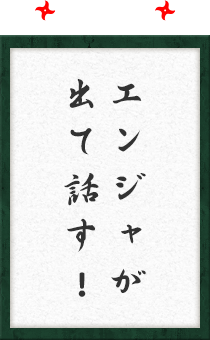 エンジャが
出て話す！